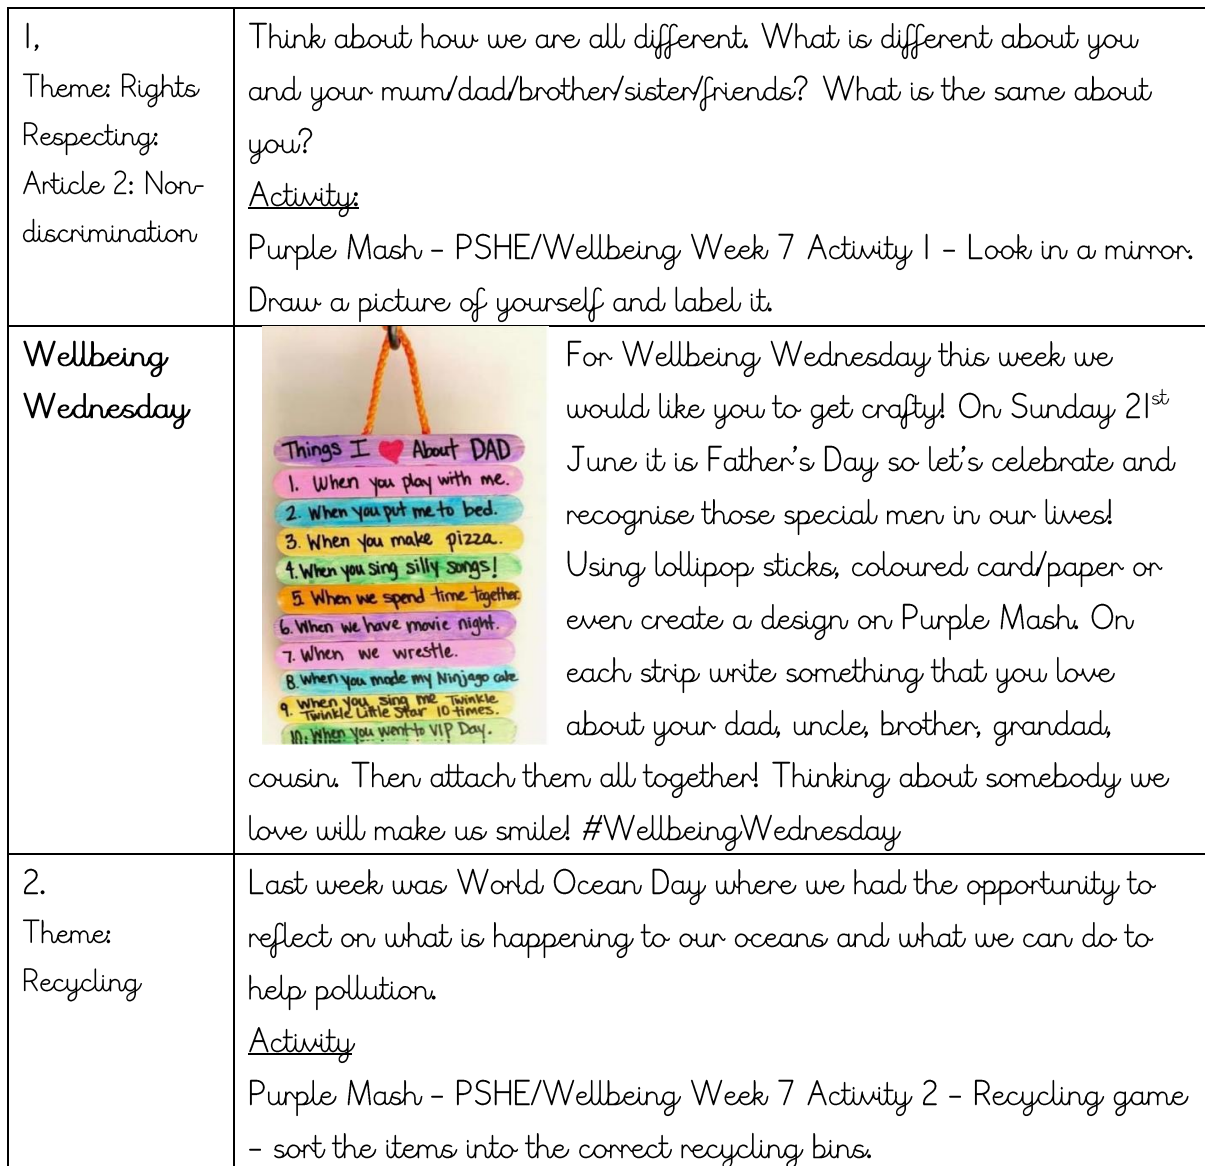 1,
Theme: Rights
Respecting:
Article 2: Non-
discrimination
Think about how we are all different. What is different about you
and your mum/dad/brother/sister/friends? What is the same about
you?
Activity:
Purple Mash - PSHE/Wellbeing Week 7 Activity 1 - Look in a mirror.
Draw a picture of yourself and label it.
Wellbeing
Wednesday
Things I ❤ About DAD
1. When you play with me.
2. When you put me to bed.
3. When you make pizza.
4. When you sing silly songs!
5. When we spend time together.
6. When we have movie night.
7. When we wrestle.
8. When you made my Ninjago cake
9. When you sing me Twinkle
Twinkle Little Star 10 times.
10. When you went to VIP Day.
For Wellbeing Wednesday this week we
would like you to get crafty! On Sunday 21st
June it is Father's Day so let's celebrate and
recognise those special men in our lives!
Using lollipop sticks, coloured card/paper or
even create a design on Purple Mash. On
each strip write something that you love
about your dad, uncle, brother, grandad,
cousin. Then attach them all together! Thinking about somebody we
love will make us smile! #WellbeingWednesday
2.
Theme:
Recycling
Last week was World Ocean Day where we had the opportunity to
reflect on what is happening to our oceans and what we can do to
help pollution.
Activity
Purple Mash - PSHE/Wellbeing Week 7 Activity 2 - Recycling game
- sort the items into the correct recycling bins.